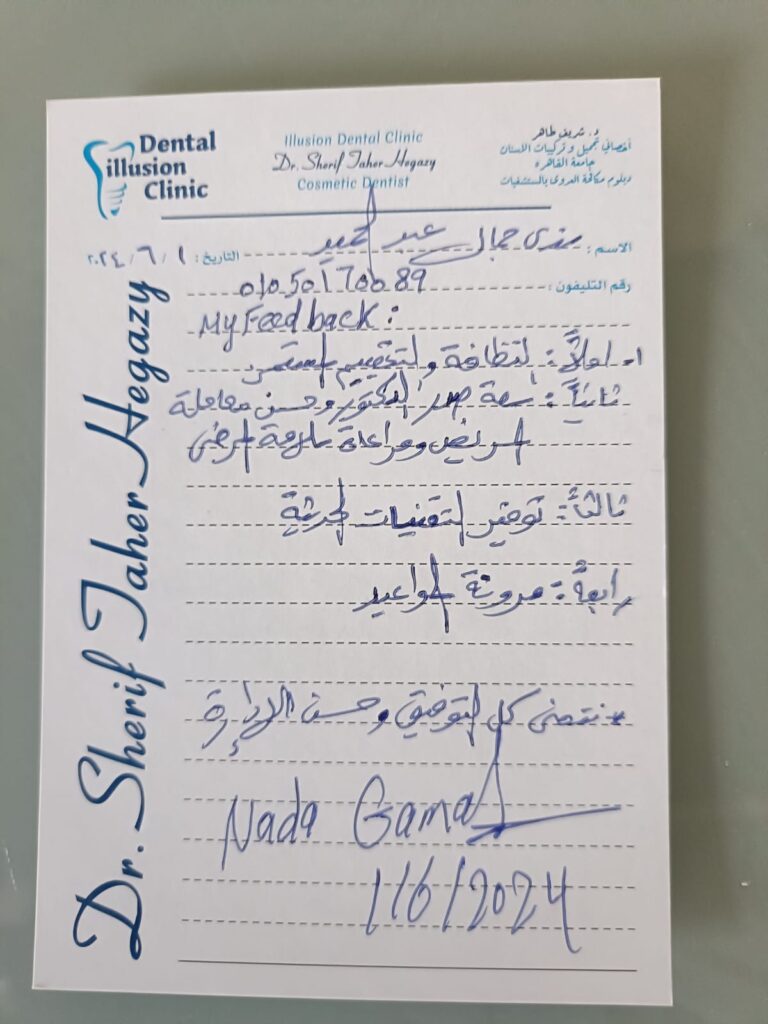 Dental
illusion
Clinic
Illusion Dental Clinic
Dr. Sherif Taher Hegazy
Cosmetic Dentist
د. شريف طاهر
أخصائي تجميل و تركيبات الاسنان
جامعة القاهره
دبلوم مكافحة العدوى بالمستشفيات
الاسم : ندى جمال عبد الحميد
التاريخ : ١ / ٦ / ٢٠٢٤
رقم التليفون : 01050170689
My Feedback :
١- اولاً : النظافة والتعقيم المستمر
ثانياً : سعة صدر الدكتور وحسن معاملة
المريض ومراعاة سلامة المرضى
ثالثاً : توفير التقنيات الحديثة
رابعةً : مرونة المواعيد
* نتمنى كل التوفيق وحسن الإدارة
Nada Gamal
1/6/2024
Dr. Sherif Taher Hegazy